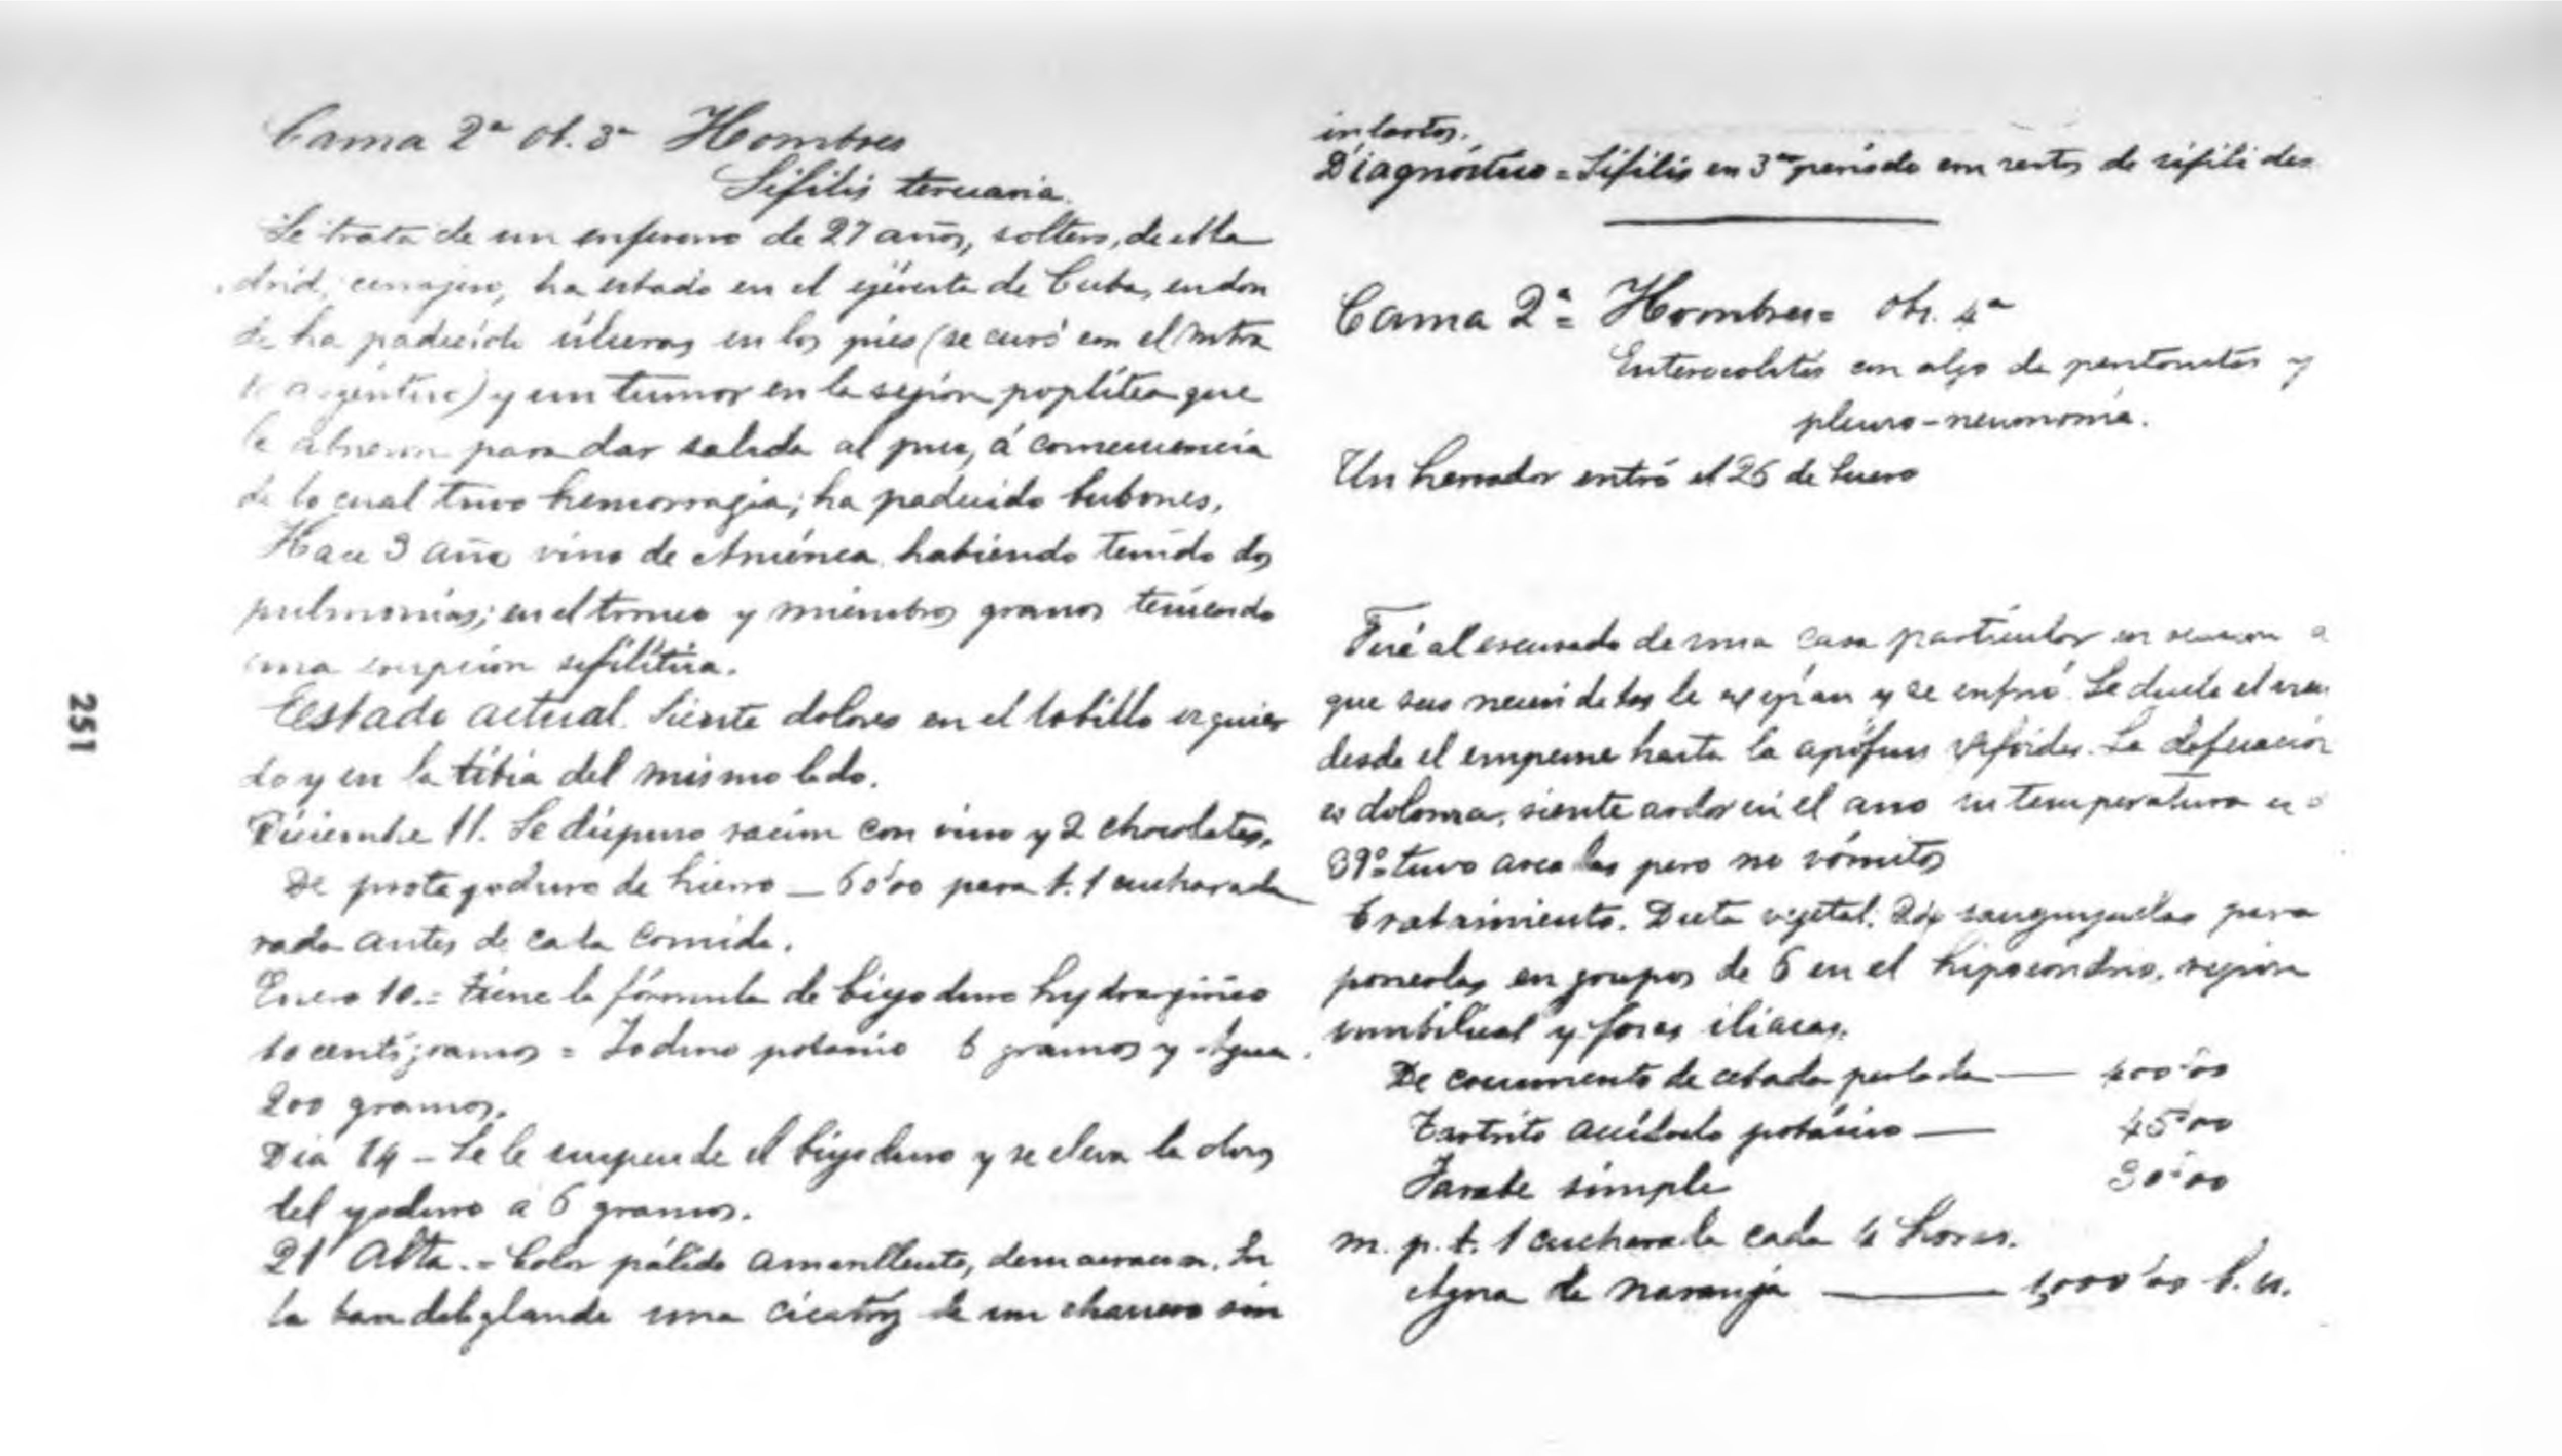 Cama 2ª Ob. 3ª Hombres
Sífilis terciaria.
Se trata de un enfermo de 27 años, soltero, de Ma
drid, cerrajero, ha estado en el ejército de Cuba, en don
de ha padecido úlceras en los pies (se curó con el nitra
to argéntico) y un tumor en la región poplítea que
le abrieron para dar salida al pus, á consecuencia
de lo cual tuvo hemorragia; ha padecido bubones.
Hace 3 año vino de América habiendo tenido dos
pulmonías; en el tronco y miembros granos teniendo
una erupción sifilítica.
Estado actual. Siente dolores en el tobillo izquier
do y en la tibia del mismo lado.
Diciembre 11. Se dispuso ración con vino y 2 chocolates.
De proto yoduro de hierro — 60'00 para t. 1 cucharada
rada antes de cada comida.
Enero 10.= Tiene la fórmula de biyoduro hydrargírico
10 centígramos = Ioduro potásico 6 gramos y Agua
200 gramos.
Dia 14 – Se le suspende el biyoduro y se eleva la dosis
del yoduro a 6 gramos.
21 Alta.= Color pálido amarillento, demacración. En
la base del glande una cicatriz de un chancro sin
infartos.
Diagnóstico = Sífilis en 3er período con restos de sifílides
Cama 2ª = Hombres= Ob. 4ª
Enterocolitis con algo de peritonitis y
pleuro-neumonía.
Un herrador entró el 26 de Enero
Fué al escusado de una casa particular en
que sus necesidades le exigían y se enfrió. Le duele el
desde el empeine hasta la apófisis xifoides. La defecación
es dolorosa, siente ardor en el ano su temperatura es
39º tuvo arcadas pero no vómitos
Tratamiento. Dieta vegetal. 24 sanguijuelas para
ponerlas en grupos de 6 en el hipocondrio, región
umbilical y fosas iliacas.
De cocimiento de cebada perlada — 400'00
Tartrito acídulo potásico — 45'00
Jarabe simple 30'00
m. p. t. 1 cucharada cada 4 horas.
Agua de naranja — 1,000'00 t. u.
251